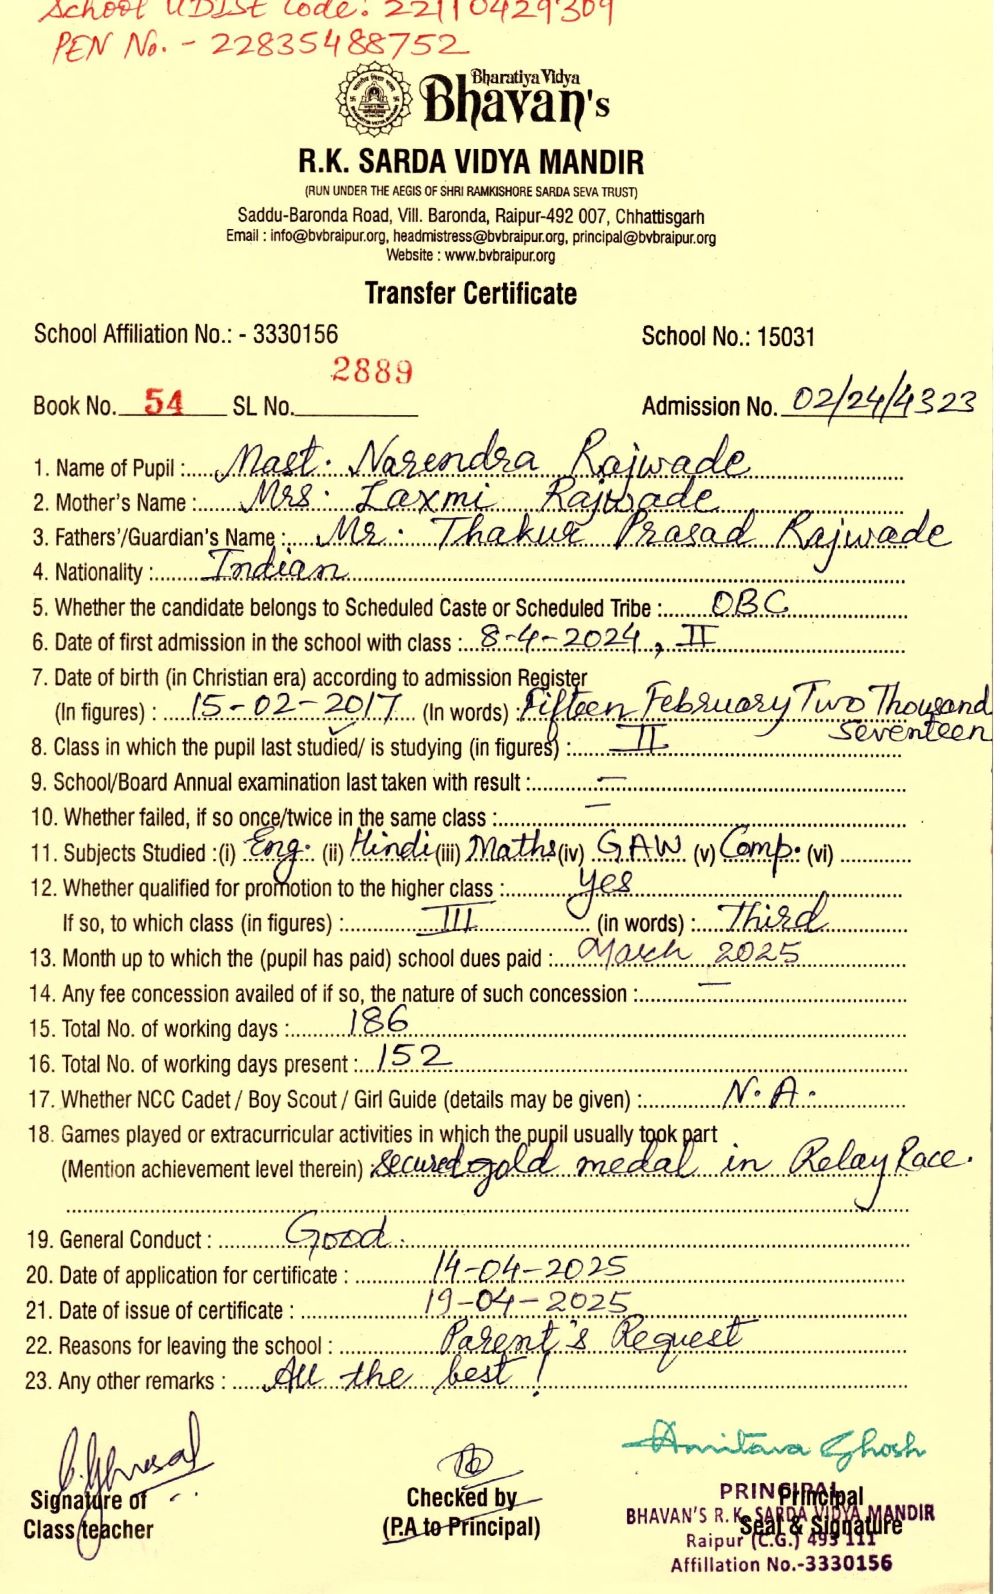 School UDISE Code: 22110429309
PEN No. - 22835488752
Bharatiya Vidya
Bhavan's
R.K. SARDA VIDYA MANDIR
(RUN UNDER THE AEGIS OF SHRI RAMKISHORE SARDA SEVA TRUST)
Saddu-Baronda Road, Vill. Baronda, Raipur-492 007, Chhattisgarh
Email : info@bvbraipur.org, headmistress@bvbraipur.org, principal@bvbraipur.org
Website : www.bvbraipur.org
Transfer Certificate
School Affiliation No.: - 3330156 School No.: 15031
Book No. 54 SL No. 2889 Admission No. 02/24/4323
1. Name of Pupil : Mast. Narendra Rajwade
2. Mother's Name : Mrs. Laxmi Rajwade
3. Fathers'/Guardian's Name : Mr. Thakur Prasad Rajwade
4. Nationality : Indian
5. Whether the candidate belongs to Scheduled Caste or Scheduled Tribe : OBC
6. Date of first admission in the school with class : 8-4-2024, II
7. Date of birth (in Christian era) according to admission Register
(In figures) : 15-02-2017 (In words) : Fifteen February Two Thousand
Seventeen
8. Class in which the pupil last studied/ is studying (in figures) : II
9. School/Board Annual examination last taken with result : —
10. Whether failed, if so once/twice in the same class : —
11. Subjects Studied :(i) Eng. (ii) Hindi (iii) Maths (iv) GAW (v) Comp. (vi)
12. Whether qualified for promotion to the higher class : Yes
If so, to which class (in figures) : III (in words) : Third
13. Month up to which the (pupil has paid) school dues paid : March 2025
14. Any fee concession availed of if so, the nature of such concession : —
15. Total No. of working days : 186
16. Total No. of working days present : 152
17. Whether NCC Cadet / Boy Scout / Girl Guide (details may be given) : N.A.
18. Games played or extracurricular activities in which the pupil usually took part
(Mention achievement level therein) Secured gold medal in Relay Race.
19. General Conduct : Good.
20. Date of application for certificate : 14-04-2025
21. Date of issue of certificate : 19-04-2025
22. Reasons for leaving the school : Parent's Request
23. Any other remarks : All the best!
Amitava Ghosh
Signature of
Class teacher
Checked by
(P.A to Principal)
Principal
Seal & Signature
PRINCIPAL
BHAVAN'S R.K. SARDA VIDYA MANDIR
Raipur (C.G.) 493 111
Affillation No.-3330156